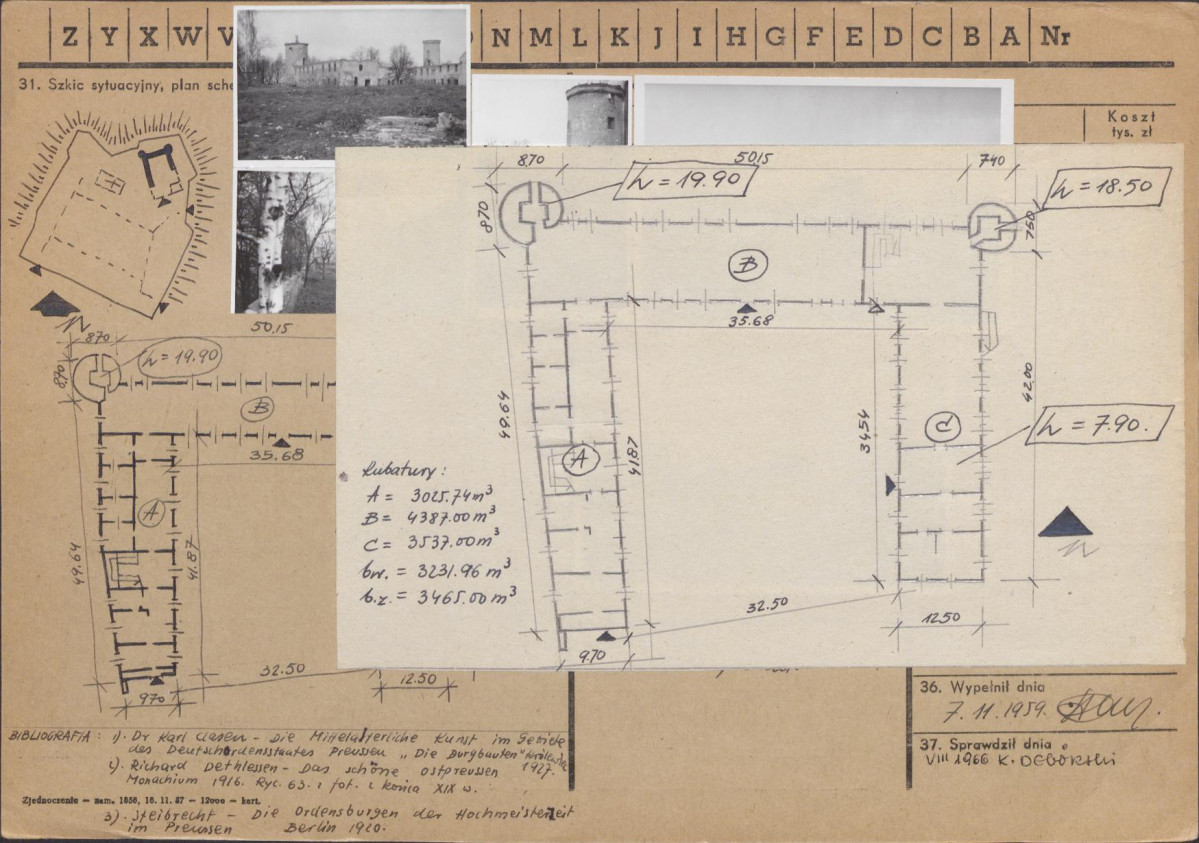 Z Y X W V N M L K J I H G F E D C B A Nr
31. Szkic sytuacyjny, plan sche
Koszt
tys. zł
870
5015
740
h = 19.90
h = 18.50
870
750
B
35.68
49.64
41.87
34.54
42.00
A
C
h = 7.90.
Kubatury:
A = 3025.74 m³
B = 4387.00 m³
C = 3537.00 m³
b.w. = 3231.96 m³
b.z. = 3465.00 m³
N
32.50
1250
9.70
50.15
870
h = 19.90
870
B
35.68
A
49.64
41.87
32.50
12.50
970
N
36. Wypełnił dnia
7.11.1959.
37. Sprawdził dnia
VIII 1966 K. DEBORSKI
BIBLIOGRAFIA: 1). Dr Karl Clasen - Die Mittelalterliche Kunst im Gebiete
des Deutschordensstaates Preussen „Die Burgbauten"
1927.
2). Richard Dethlessen - Das schöne Ostpreussen
Monachium 1916. Ryc. 63. i fot. z końca XIX w.
Zjednoczenie — zam. 1850, 16. 11. 57 — 12000 — kart.
3). Steibrecht - Die Ordensburgen der Hochmeisterzeit
im Preussen Berlin 1920.